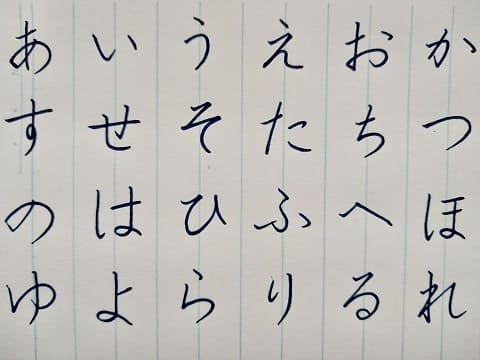 あ い う え お か
す せ そ た ち つ
の は ひ ふ へ ほ
ゆ よ ら り る れ